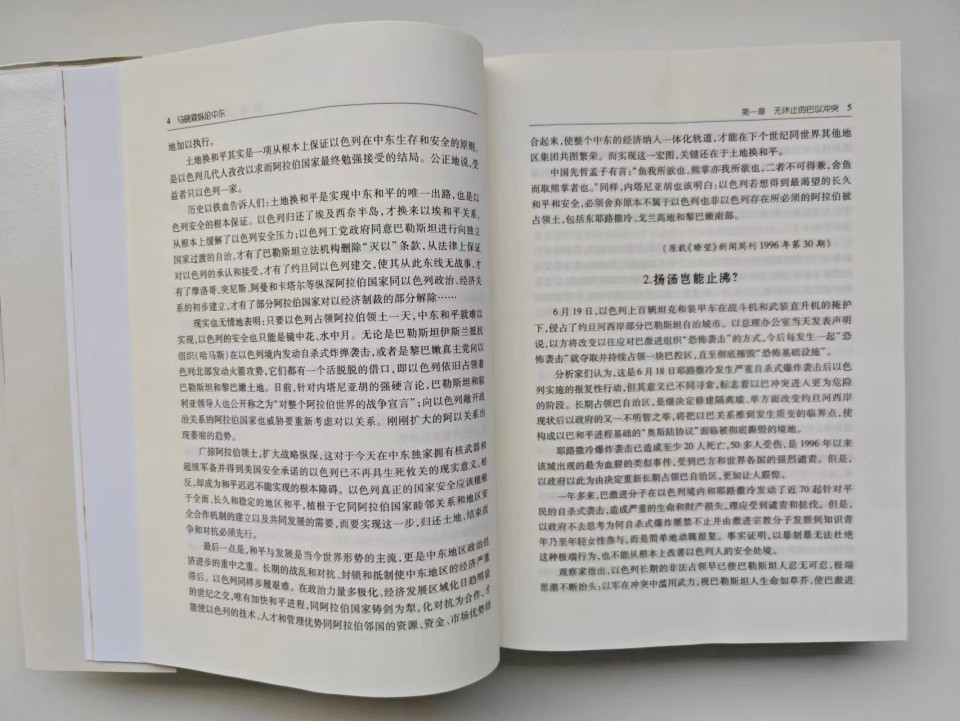 4 马晓霖纵论中东
地加以执行。
土地换和平其实是一项从根本上保证以色列在中东生存和安全的原则,
是以色列几代人孜孜以求而阿拉伯国家最终勉强接受的结局。公正地说,受
益者只以色列一家。
历史以铁血告诉人们:土地换和平是实现中东和平的唯一出路,也是以
色列安全的根本保证。以色列归还了埃及西奈半岛,才换来以埃和平关系,
从根本上缓解了以色列安全压力;以色列工党政府同意巴勒斯坦进行向独立
国家过渡的自治,才有了巴勒斯坦立法机构删除“灭以”条款,从法律上保证
对以色列的承认和接受,才有了约旦同以色列建交,使其从此东线无战事,才
有了摩洛哥、突尼斯、阿曼和卡塔尔等纵深阿拉伯国家同以色列政治、经济关
系的初步建立,才有了部分阿拉伯国家对以经济制裁的部分解除……
现实也无情地表明:只要以色列占领阿拉伯领土一天,中东和平就难以
实现,以色列的安全也只能是镜中花、水中月。无论是巴勒斯坦伊斯兰抵抗
组织(哈马斯)在以色列境内发动自杀式炸弹袭击,或者是黎巴嫩真主党向以
色列北部发动火箭攻势,它们都有一个活脱脱的借口,即以色列依旧占领着
巴勒斯坦和黎巴嫩土地。日前,针对内塔尼亚胡的强硬言论,巴勒斯坦和叙
利亚领导人也公开称之为“对整个阿拉伯世界的战争宣言”;向以色列敞开政
治关系的阿拉伯国家也威胁要重新考虑对以关系。刚刚扩大的阿以关系出
现萎缩的趋势。
广掠阿拉伯领土,扩大战略纵深,这对于今天在中东独家拥有核武器和
超级军备并得到美国安全承诺的以色列已不再具生死攸关的现实意义,相
反,却成为和平迟迟不能实现的根本障碍。以色列真正的国家安全应该植根
于全面、长久和稳定的地区和平,植根于它同阿拉伯国家睦邻关系和地区安
全合作机制的建立以及共同发展的需要,而要实现这一步,归还土地、结束战
争和对抗必须先行。
最后一点是,和平与发展是当今世界形势的主流,更是中东地区政治经
济进步的重中之重。长期的战乱和对抗、封锁和抵制使中东地区的经济严重
滞后。以色列同样步履艰难。在政治力量多极化、经济发展区域化日趋明显
的世纪之交,唯有加快和平进程,同阿拉伯国家铸剑为犁,化对抗为合作,才
能使以色列的技术、人才和管理优势同阿拉伯邻国的资源、资金、市场优势结
第一章 无休止的巴以冲突 5
合起来,使整个中东的经济纳入一体化轨道,才能在下个世纪同世界其他地
区集团共图繁荣。而实现这一宏图,关键还在于土地换和平。
中国先哲孟子有言:“鱼我所欲也,熊掌亦我所欲也,二者不可得兼,舍鱼
而取熊掌者也。”同样,内塔尼亚胡也该明白:以色列若想得到最渴望的长久
和平和安全,必须舍弃原本不属于以色列也非以色列存在所必须的阿拉伯被
占领土,包括东耶路撒冷、戈兰高地和黎巴嫩南部。
(原载《瞭望》新闻周刊1996年第30期)
2.扬汤岂能止沸?
6月19日,以色列上百辆坦克和装甲车在战斗机和武装直升机的掩护
下,侵占了约旦河西岸部分巴勒斯坦自治城市。以总理办公室当天发表声明
说,以方将改变以往应对巴激进组织“恐怖袭击”的方式,今后每发生一起“恐
怖袭击”就夺取并持续占领一块巴控区,直至彻底摧毁“恐怖基础设施”。
分析家们认为,这是6月18日耶路撒冷发生严重自杀式爆炸袭击后以色
列实施的报复性行动,但其意义已不同寻常,标志着以巴冲突进入更为危险
的阶段。长期占领巴自治区,是继决定修建隔离墙、单方面改变约旦河西岸
现状后以政府的又一不明智之举,将把以巴关系推到发生质变的临界点,使
构成以巴和平进程基础的“奥斯陆协议”面临被彻底撕毁的境地。
耶路撒冷爆炸袭击已造成至少20人死亡,50多人受伤,是1996年以来
该城出现的最为血腥的类似事件,受到巴方和世界各国的强烈谴责。但是,
以政府以此为由决定重新长期占领巴自治区,更加让人震惊。
一年多来,巴激进分子在以色列境内和耶路撒冷发动了近70起针对平
民的自杀式袭击,造成严重的生命和财产损失,理应受到谴责和挞伐。但是,
以政府不去思考为何自杀式爆炸屡禁不止并由激进宗教分子发展到知识青
年乃至年轻女性参与,而是简单地动辄报复。事实证明,以暴制暴无法杜绝
这种极端行为,也不能从根本上改善以色列人的安全处境。
观察家指出,以色列长期的非法占领早已使巴勒斯坦人忍无可忍,极端
思潮不断抬头;以军在冲突中滥用武力,视巴勒斯坦人生命如草芥,使巴激进